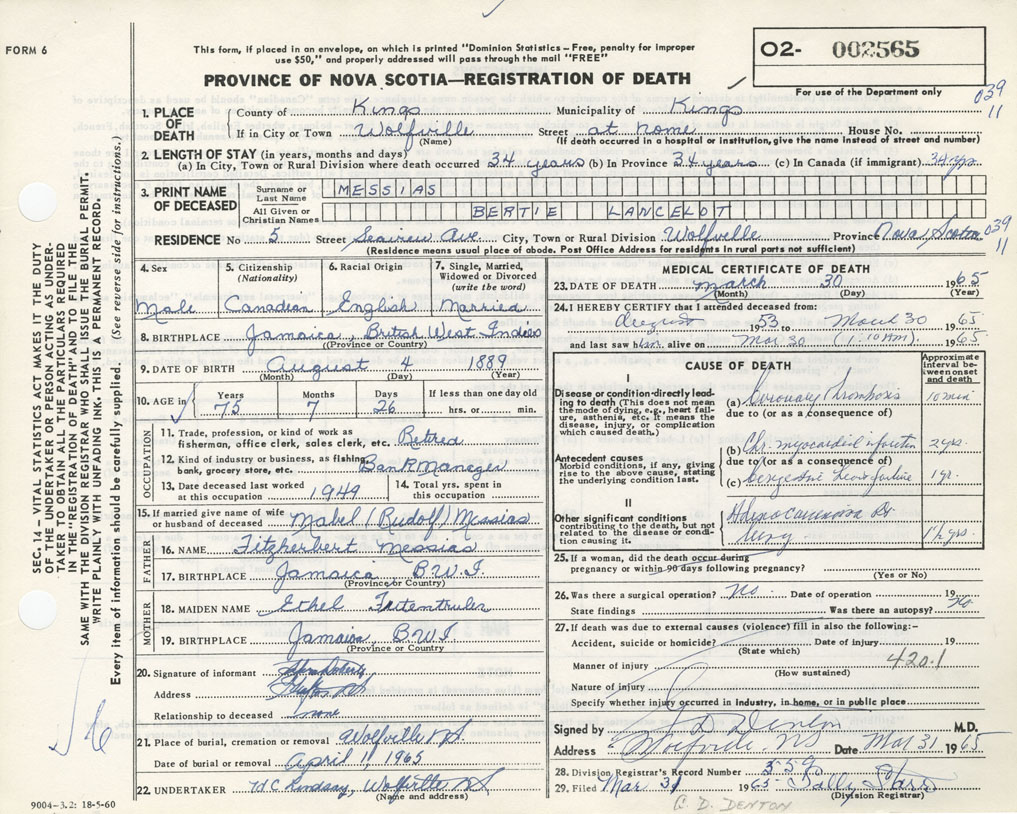 FORM 6
This form, if placed in an envelope, on which is printed "Dominion Statistics – Free, penalty for improper
use $50," and properly addressed will pass through the mail "FREE"
PROVINCE OF NOVA SCOTIA—REGISTRATION OF DEATH
O2- 002565
For use of the Department only
039
11
1. PLACE OF DEATH
County of Kings Municipality of Kings
If in City or Town Wolfville Street at home House No.
(Name) (If death occurred in a hospital or institution, give the name instead of street and number)
2. LENGTH OF STAY (in years, months and days)
(a) In City, Town or Rural Division where death occurred 34 years (b) In Province 34 years (c) In Canada (if immigrant) 34 yrs
3. PRINT NAME OF DECEASED
Surname or Last Name MESSIAS
All Given or Christian Names BERTIE LANCELOT
RESIDENCE No 5 Street Seaview Ave. City, Town or Rural Division Wolfville Province Nova Scotia
039
11
(Residence means usual place of abode. Post Office Address for residents in rural parts not sufficient)
4. Sex
Male
5. Citizenship (Nationality)
Canadian
6. Racial Origin
English
7. Single, Married, Widowed or Divorced (write the word)
Married
8. BIRTHPLACE Jamaica, British West Indies
(Province or Country)
9. DATE OF BIRTH August 4 1889
(Month) (Day) (Year)
10. AGE in Years 75 Months 7 Days 26 If less than one day old hrs. or min.
OCCUPATION
11. Trade, profession, or kind of work as
fisherman, office clerk, sales clerk, etc. Retired
12. Kind of industry or business, as fishing,
bank, grocery store, etc. Bank Manager
13. Date deceased last worked at this occupation 1949
14. Total yrs. spent in this occupation
15. If married give name of wife or husband of deceased Mabel (Rudolf) Messias
FATHER
16. NAME Fitzherbert Messias
17. BIRTHPLACE Jamaica B.W.I.
(Province or Country)
MOTHER
18. MAIDEN NAME Ethel
19. BIRTHPLACE Jamaica, B.W.I
(Province or Country)
20. Signature of informant
Address
Relationship to deceased none
21. Place of burial, cremation or removal Wolfville N.S.
Date of burial or removal April 1, 1965
22. UNDERTAKER W.C. Lindsay, Wolfville N S
(Name and address)
MEDICAL CERTIFICATE OF DEATH
23. DATE OF DEATH March 30 1965
(Month) (Day) (Year)
24. I HEREBY CERTIFY that I attended deceased from:
August 1953 to March 30 1965
and last saw him alive on Mar 30 (1:10 AM). 1965
CAUSE OF DEATH
Approximate interval between onset and death
I
Disease or condition directly leading to death (This does not mean the mode of dying, e.g., heart failure, asthenia, etc. It means the disease, injury, or complication which caused death.)
(a) Coronary Thrombosis 10 min
due to (or as a consequence of)
Antecedent causes
Morbid conditions, if any, giving rise to the above cause, stating the underlying condition last.
(b) Chr. myocardial infarction 2 yrs.
due to (or as a consequence of)
(c) Congestive heart failure 1 yr.
II
Other significant conditions
contributing to the death, but not related to the disease or condition causing it.
Adenocarcinoma Rt
lung 1½ yrs.
25. If a woman, did the death occur during
pregnancy or within 90 days following pregnancy?
(Yes or No)
26. Was there a surgical operation? No Date of operation 19
State findings Was there an autopsy? No
27. If death was due to external causes (violence) fill in also the following:–
Accident, suicide or homicide? Date of injury 19
(State which)
Manner of injury 420.1
(How sustained)
Nature of injury
Specify whether injury occurred in Industry, in home, or in public place
Signed by D Denton M.D.
Address Wolfville, NS Date Mar 31 1965
28. Division Registrar's Record Number 559
29. Filed Mar 31 1965
(Division Registrar)
C. D. DENTON
SEC. 14 – VITAL STATISTICS ACT MAKES IT THE DUTY
OF THE UNDERTAKER OR PERSON ACTING AS UNDER-
TAKER TO OBTAIN ALL THE PARTICULARS REQUIRED
IN THE "REGISTRATION OF DEATH" AND TO FILE THE
SAME WITH THE DIVISION REGISTRAR WHO SHALL ISSUE THE BURIAL PERMIT.
WRITE PLAINLY WITH UNFADING INK. THIS IS A PERMANENT RECORD.
Every item of information should be carefully supplied. (See reverse side for instructions.)
9004–3.2: 18-5-60